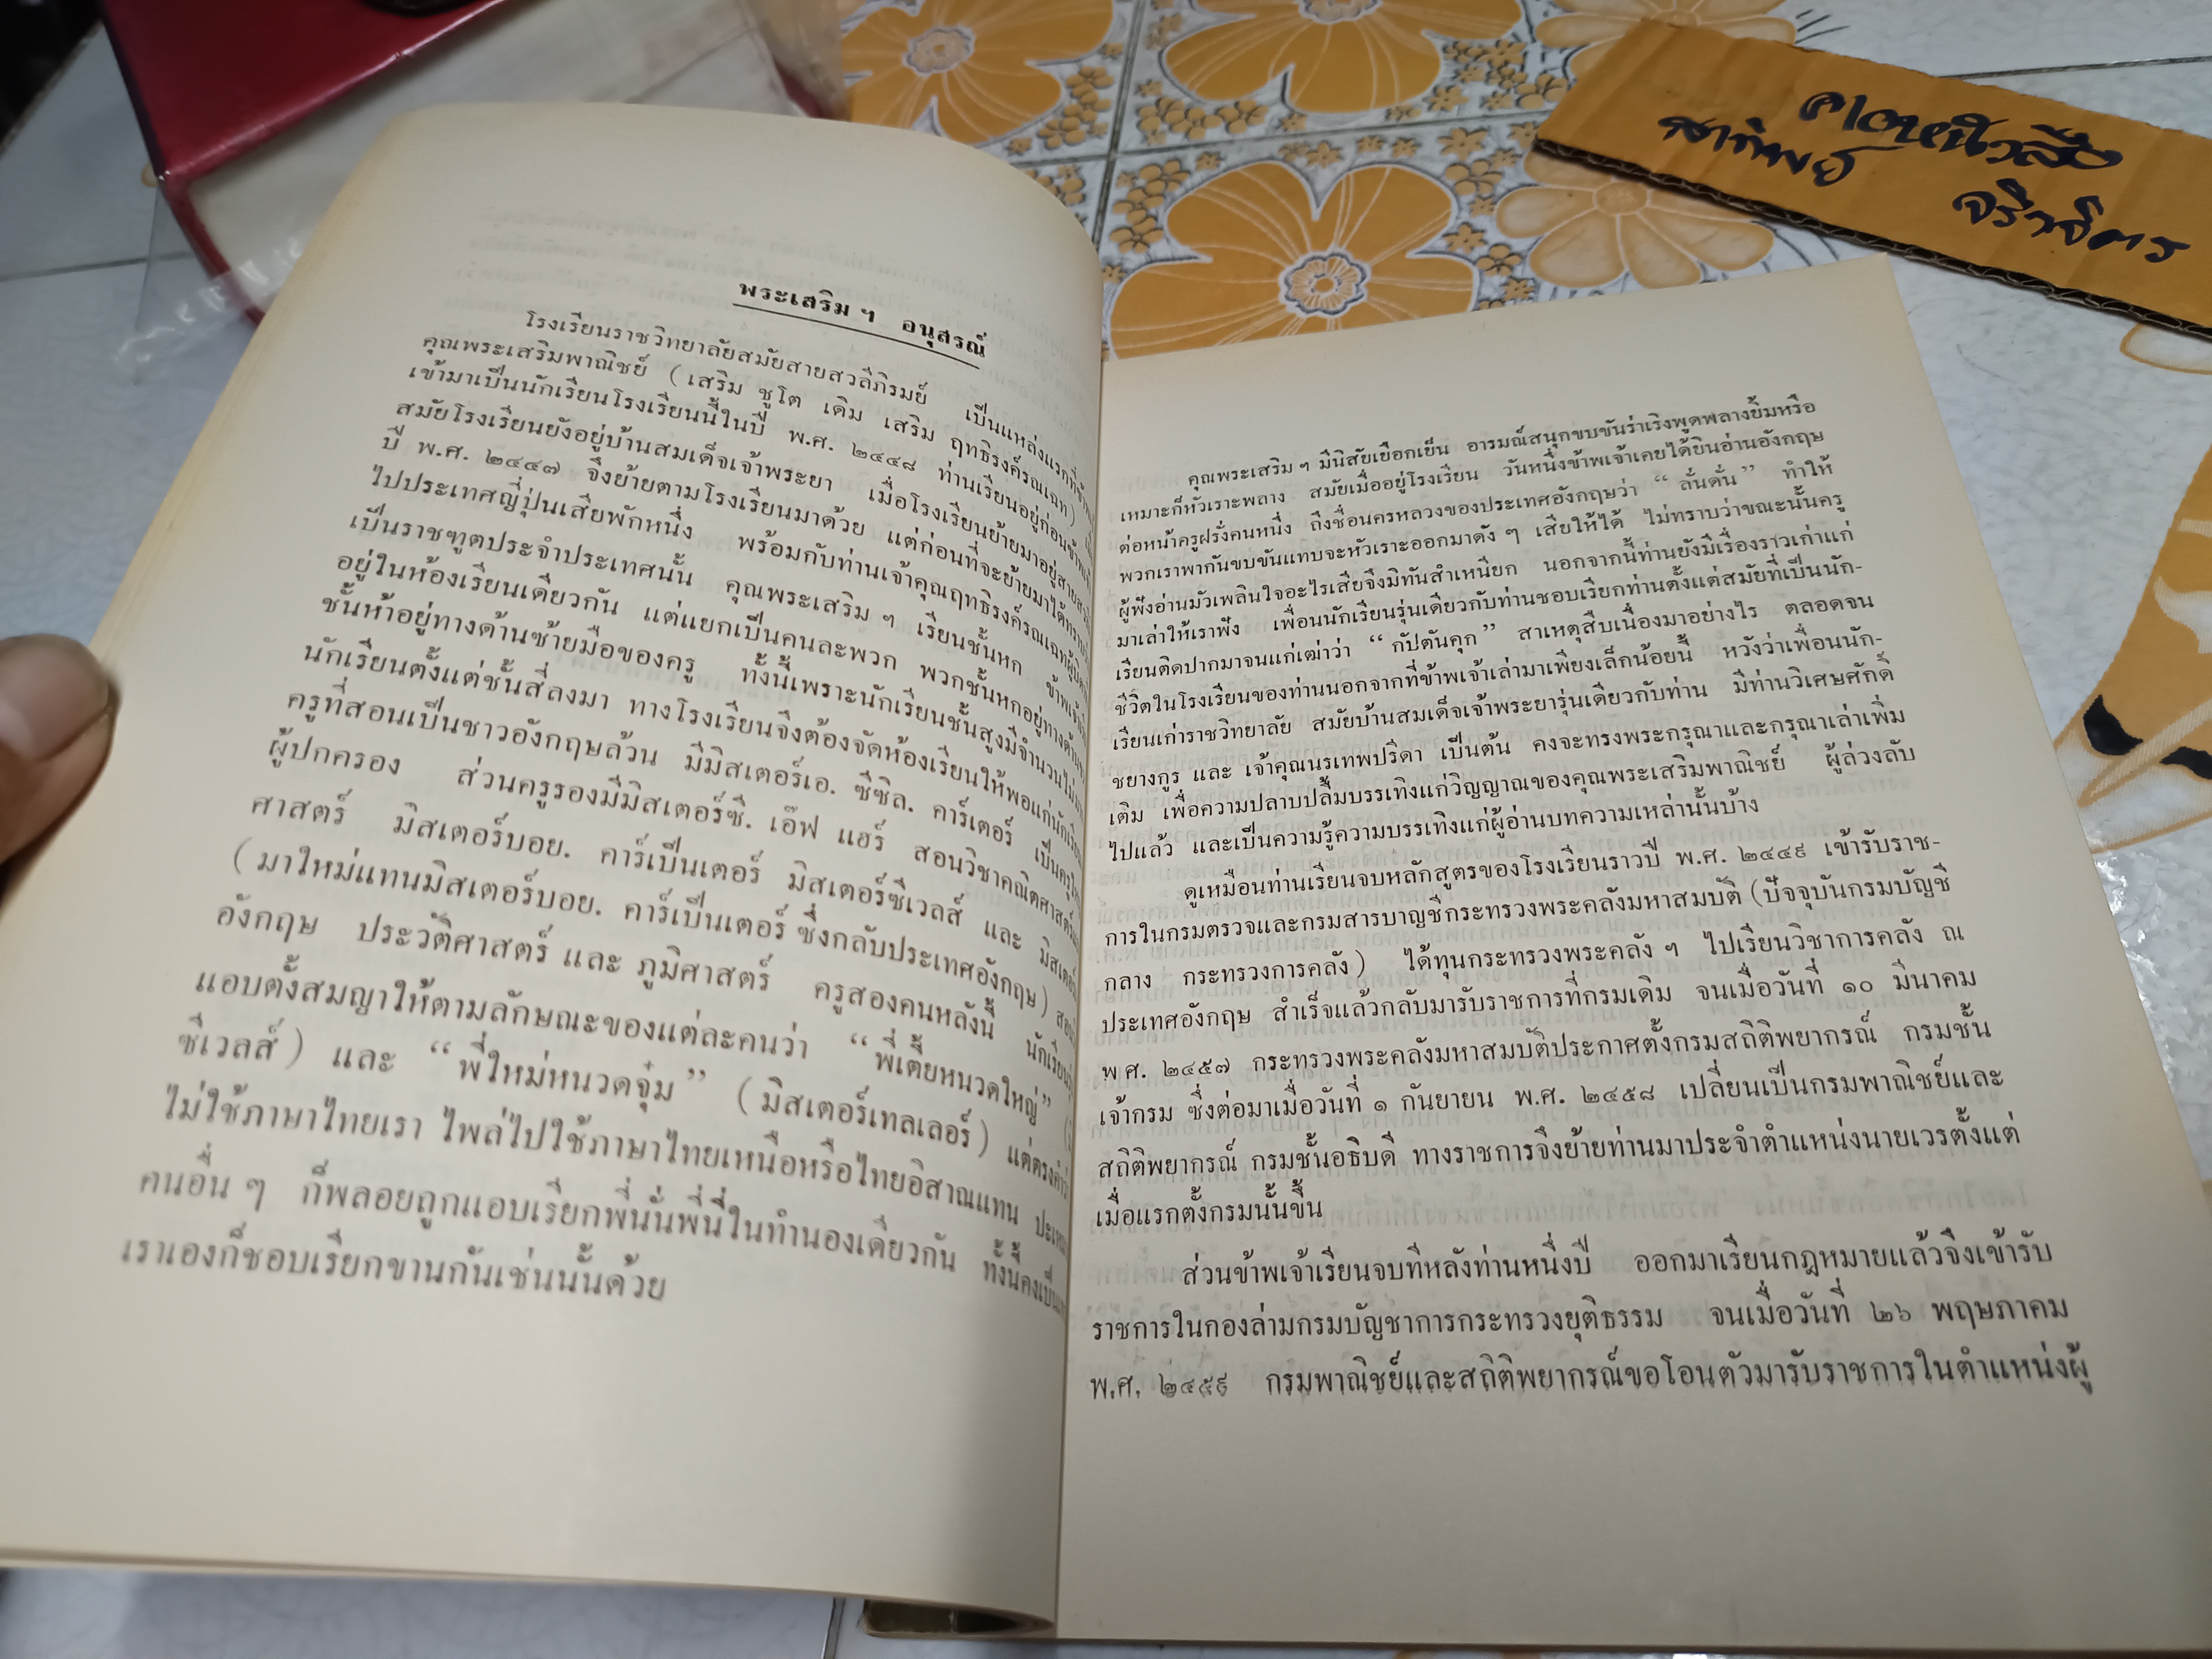 พระเสริม ฯ อนุสรณ์
โรงเรียนราชวิทยาลัยสมัยสายสวลีภิรมย์ เป็นแหล่งแรกที่ข้าพเจ้า
คุณพระเสริมพาณิชย์ (เสริม ชูโต เดิม เสริม ฤทธิรงค์รณเฉท)
เข้ามาเป็นนักเรียนโรงเรียนนี้ในปี พ.ศ. ๒๔๔๘ ท่านเรียนอยู่ก่อนข้าพเจ้า
สมัยโรงเรียนยังอยู่บ้านสมเด็จเจ้าพระยา เมื่อโรงเรียนย้ายมาอยู่สายสวลี
ปี พ.ศ. ๒๔๔๗ จึงย้ายตามโรงเรียนมาด้วย แต่ก่อนที่จะย้ายมาได้ทราบว่า
ไปประเทศญี่ปุ่นเสียพักหนึ่ง พร้อมกับท่านเจ้าคุณฤทธิรงค์รณเฉทผู้บิดา
เป็นราชฑูตประจำประเทศนั้น คุณพระเสริม ฯ เรียนชั้นหก ข้าพเจ้า
อยู่ในห้องเรียนเดียวกัน แต่แยกเป็นคนละพวก พวกชั้นหกอยู่ทางด้าน
ชั้นห้าอยู่ทางด้านซ้ายมือของครู ทั้งนี้เพราะนักเรียนชั้นสูงมีจำนวนไม่
นักเรียนตั้งแต่ชั้นสี่ลงมา ทางโรงเรียนจึงต้องจัดห้องเรียนให้พอแก่นักเรียน
ครูที่สอนเป็นชาวอังกฤษล้วน มีมิสเตอร์เอ. ซีซิล. คาร์เตอร์ เป็นครูใหญ่
ผู้ปกครอง ส่วนครูรองมีมิสเตอร์ซี. เอ๊ฟ แฮร์ สอนวิชาคณิตศาสตร์
ศาสตร์ มิสเตอร์บอย. คาร์เป็นเตอร์ มิสเตอร์ซีเวลส์ และ มิสเตอร์
(มาใหม่แทนมิสเตอร์บอย. คาร์เป็นเตอร์ ซึ่งกลับประเทศอังกฤษ) สอน
อังกฤษ ประวัติศาสตร์ และ ภูมิศาสตร์ ครูสองคนหลังนี้ นักเรียน
แอบตั้งสมญาให้ตามลักษณะของแต่ละคนว่า “พี่เตี้ยหนวดใหญ่” (
ซีเวลส์) และ “พี่ใหม่หนวดจุ๋ม” (มิสเตอร์เทลเลอร์) แต่ตรงคำว่า
ไม่ใช้ภาษาไทยเรา ไพล่ไปใช้ภาษาไทยเหนือหรือไทยอิสาณแทน
คนอื่น ๆ ก็พลอยถูกแอบเรียกพี่นั่นพี่นี่ในทำนองเดียวกัน ทั้งนี้คงเป็น
เราเองก็ชอบเรียกขานกันเช่นนั้นด้วย
คุณพระเสริม ฯ มีนิสัยเยือกเย็น อารมณ์สนุกขบขันร่าเริงพูดพลางยิ้มหรือ
เหมาะก็หัวเราะพลาง สมัยเมื่ออยู่โรงเรียน วันหนึ่งข้าพเจ้าเคยได้ยินอ่านอังกฤษ
ต่อหน้าครูฝรั่งคนหนึ่ง ถึงชื่อนครหลวงของประเทศอังกฤษว่า “ลั่นดั่น” ทำให้
พวกเราพากันขบขันแทบจะหัวเราะออกมาดัง ๆ เสียให้ได้ ไม่ทราบว่าขณะนั้นครู
ผู้ฟังอ่านมัวเพลินใจอะไรเสียจึงมิทันสำเหนียก นอกจากนี้ท่านยังมีเรื่องราวเก่าแก่
มาเล่าให้เราฟัง เพื่อนนักเรียนรุ่นเดียวกับท่านชอบเรียกท่านตั้งแต่สมัยที่เป็นนัก-
เรียนติดปากมาจนแก่เฒ่าว่า “กัปตันคุก” สาเหตุสืบเนื่องมาอย่างไร ตลอดจน
ชีวิตในโรงเรียนของท่านนอกจากที่ข้าพเจ้าเล่ามาเพียงเล็กน้อยนี้ หวังว่าเพื่อนนัก-
เรียนเก่าราชวิทยาลัย สมัยบ้านสมเด็จเจ้าพระยารุ่นเดียวกับท่าน มีท่านวิเศษศักดิ์
ชยางกูร และ เจ้าคุณนรเทพปรีดา เป็นต้น คงจะทรงพระกรุณาและกรุณาเล่าเพิ่ม
เติม เพื่อความปลาบปลื้มบรรเทิงแก่วิญญาณของคุณพระเสริมพาณิชย์ ผู้ล่วงลับ
ไปแล้ว และเป็นความรู้ความบรรเทิงแก่ผู้อ่านบทความเหล่านั้นบ้าง
ดูเหมือนท่านเรียนจบหลักสูตรของโรงเรียนราวปี พ.ศ. ๒๔๔๙ เข้ารับราช-
การในกรมตรวจและกรมสารบาญชีกระทรวงพระคลังมหาสมบัติ (ปัจจุบันกรมบัญชี
กลาง กระทรวงการคลัง) ได้ทุนกระทรวงพระคลัง ฯ ไปเรียนวิชาการคลัง ณ
ประเทศอังกฤษ สำเร็จแล้วกลับมารับราชการที่กรมเดิม จนเมื่อวันที่ ๑๐ มีนาคม
พ.ศ. ๒๔๕๗ กระทรวงพระคลังมหาสมบัติประกาศตั้งกรมสถิติพยากรณ์ กรมชั้น
เจ้ากรม ซึ่งต่อมาเมื่อวันที่ ๑ กันยายน พ.ศ. ๒๔๕๘ เปลี่ยนเป็นกรมพาณิชย์และ
สถิติพยากรณ์ กรมชั้นอธิบดี ทางราชการจึงย้ายท่านมาประจำตำแหน่งนายเวรตั้งแต่
เมื่อแรกตั้งกรมนั้นขึ้น
ส่วนข้าพเจ้าเรียนจบทีหลังท่านหนึ่งปี ออกมาเรียนกฎหมายแล้วจึงเข้ารับ
ราชการในกองล่ามกรมบัญชาการกระทรวงยุติธรรม จนเมื่อวันที่ ๒๖ พฤษภาคม
พ.ศ. ๒๔๕๙ กรมพาณิชย์และสถิติพยากรณ์ขอโอนตัวมารับราชการในตำแหน่งผู้
สาทิพย์
จรีาจิตร